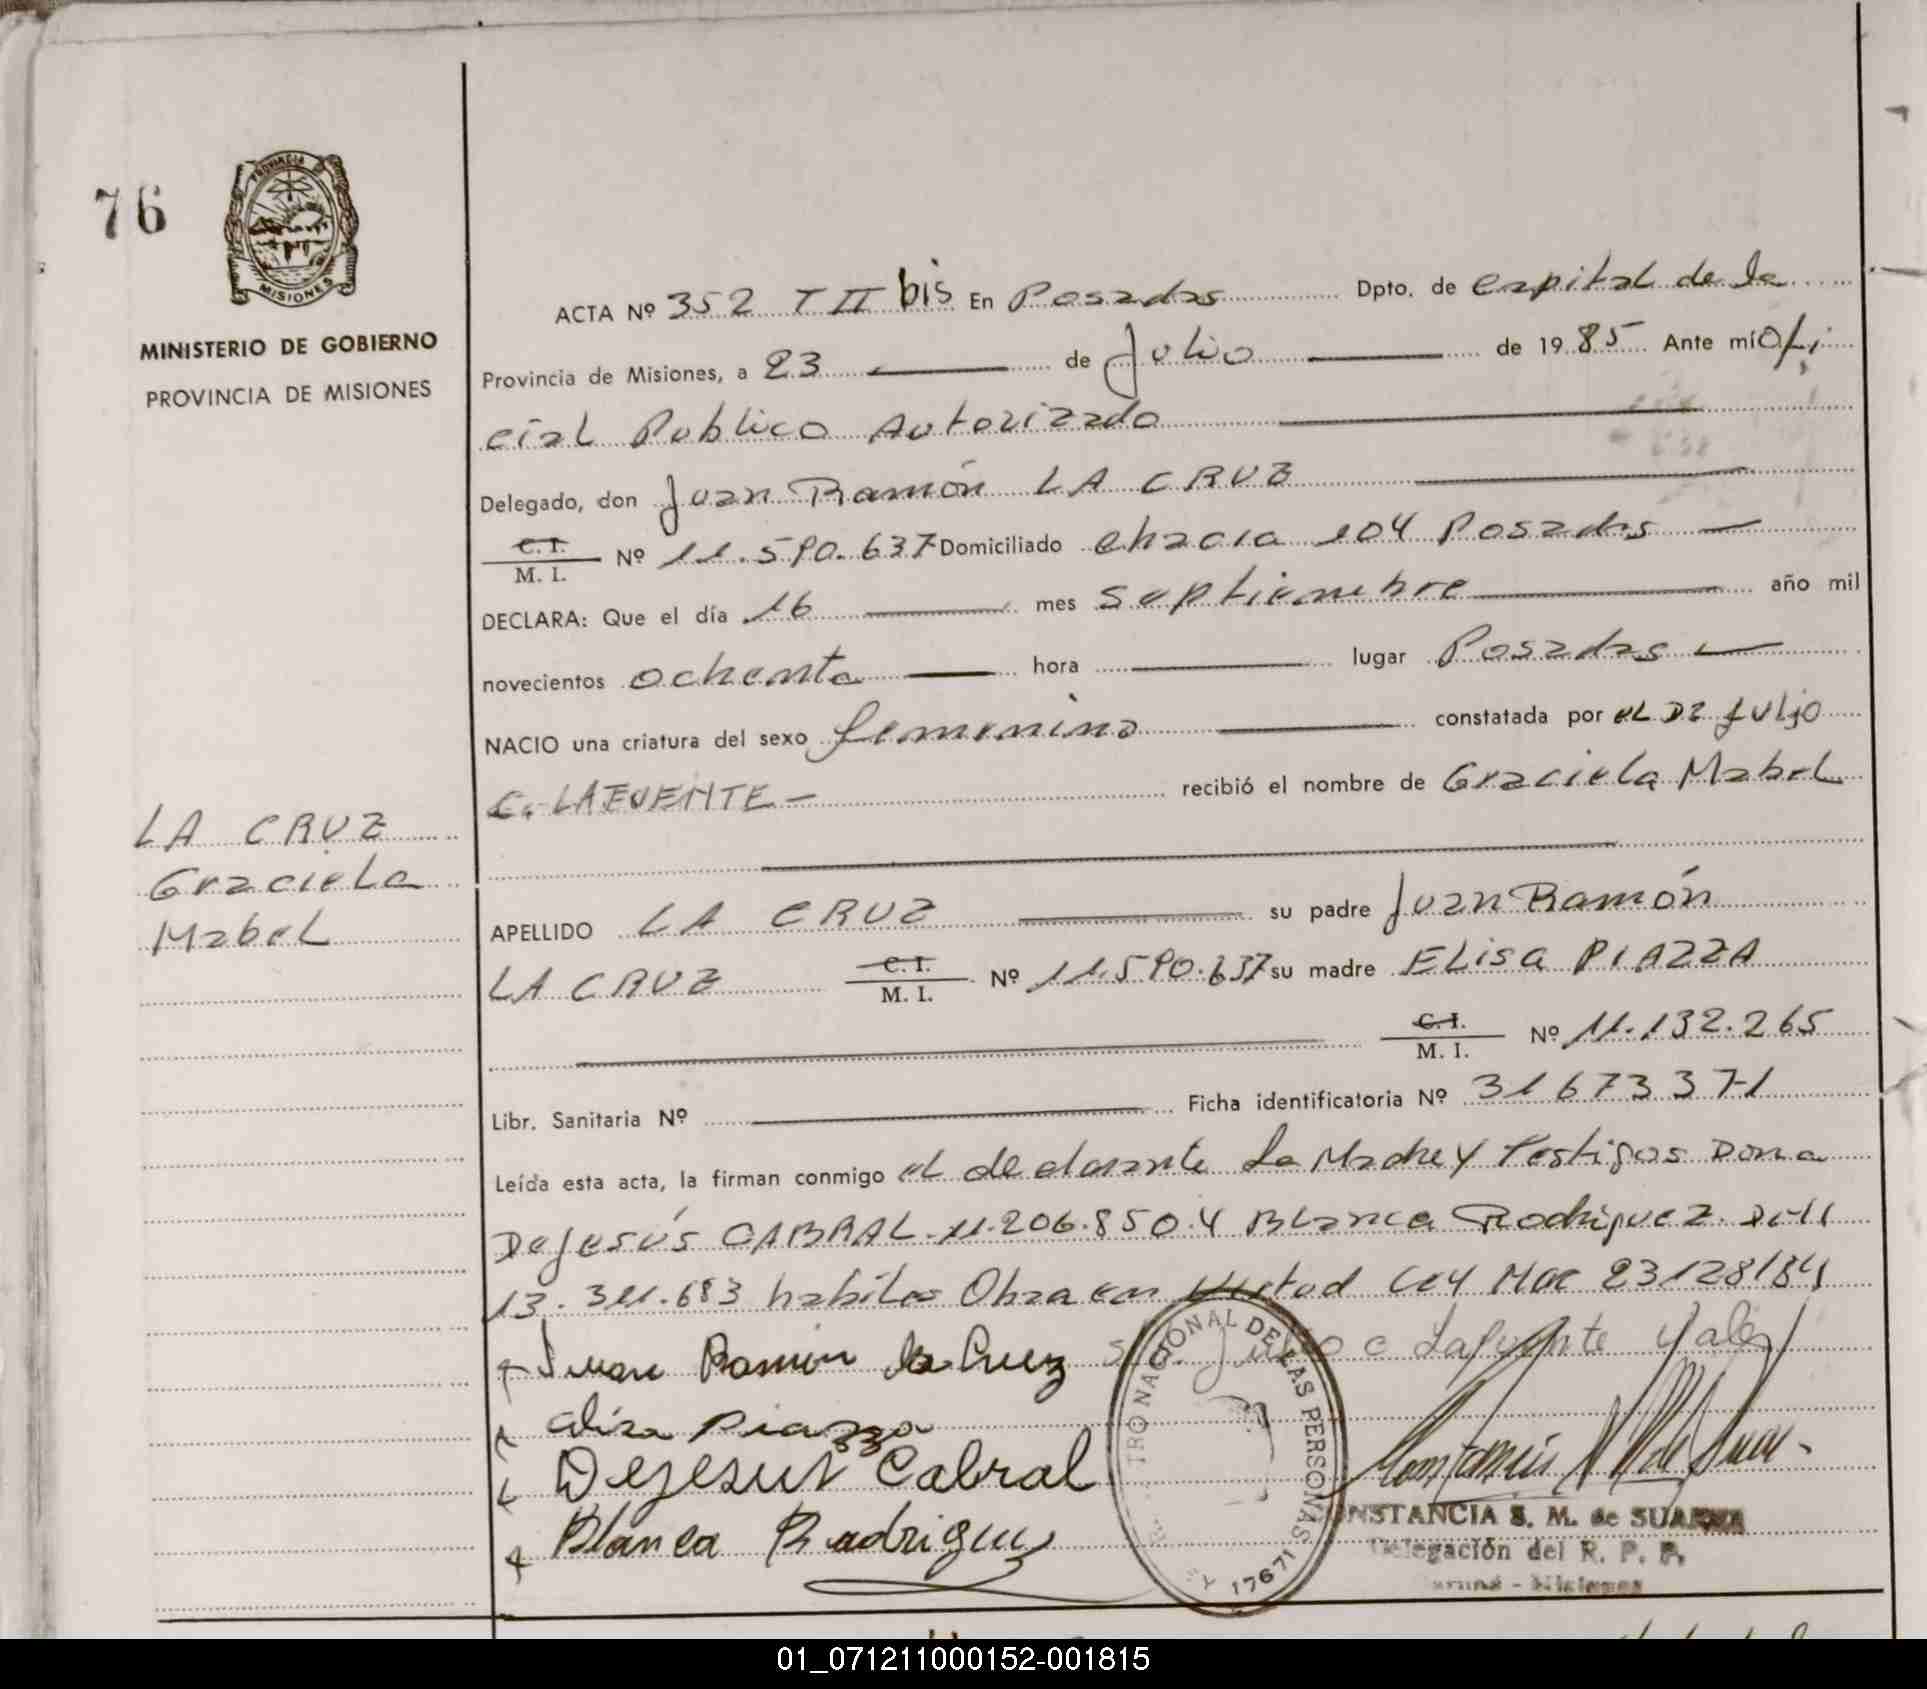 76
PROVINCIA
MISIONES
MINISTERIO DE GOBIERNO
PROVINCIA DE MISIONES
ACTA Nº 352 T II bis En Posadas Dpto. de Capital de la
Provincia de Misiones, a 23 de Julio de 1985 Ante mí Ofi
cial Publico Autorizado
Delegado, don Juan Ramón LA CRUZ
C.I. / M. I. Nº 11.590.637 Domiciliado chacra 104 Posadas
DECLARA: Que el día 16 mes septiembre año mil
novecientos ochenta hora lugar Posadas
NACIO una criatura del sexo femenino constatada por el Dr Julio
C. LAFUENTE - recibió el nombre de Graciela Mabel
LA CRUZ
Graciela
Mabel
APELLIDO LA CRUZ su padre Juan Ramón
LA CRUZ C.I. / M. I. Nº 11.590.637 su madre ELisa PIAZZA
C.I. / M. I. Nº 11.132.265
Libr. Sanitaria Nº Ficha identificatoria Nº 31673371
Leída esta acta, la firman conmigo el declarante La Madre y Testigos Dona
DeJesús CABRAL 11.206.850 y Blanca Rodriguez
13.311.683 habiles Obra en Virtud Ley Nac 23128/84
Juan Ramon la Cruz Lafuente Vale
elisa Piazza
Dejesus Cabral
Blanca Rodriguez
NACIONAL DE LAS PERSONAS
17671
CONSTANCIA S. M. de SUAREZ
Delegación del R. P. P.
Misiones
01_071211000152-001815